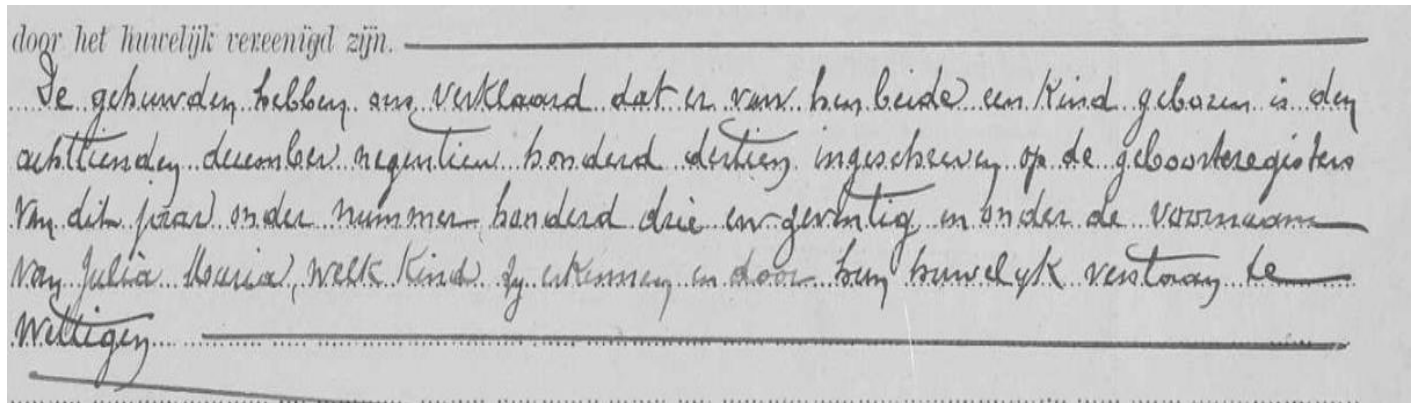 door het huwelijk vereenigd zijn.
De gehuwden hebben ons verklaard dat er van hen beide een kind geboren is den
achttienden december negentien honderd dertien ingeschreven op de geboorteregisters
van dit jaar onder nummer honderd drie en zeventig en onder de voornaam
van Julia Maria, welk kind zy erkennen en door hun huwelyk verstaan te
wettigen